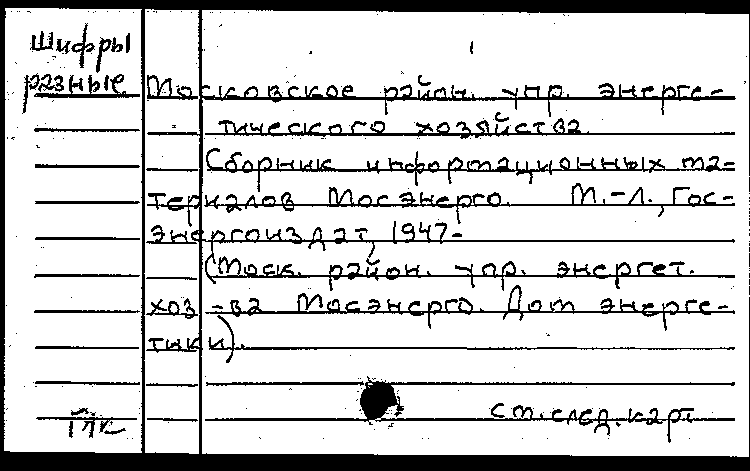 Шифры
разные
Московское район. упр. энерге-
тического хозяйства.
Сборник информационных ма-
териалов Мосэнерго. М.-Л., Гос-
энергоиздат, 1947-
(Моск. район. упр. энергет.
хоз-ва Мосэнерго. Дом энерге-
тики).
см. след. карт